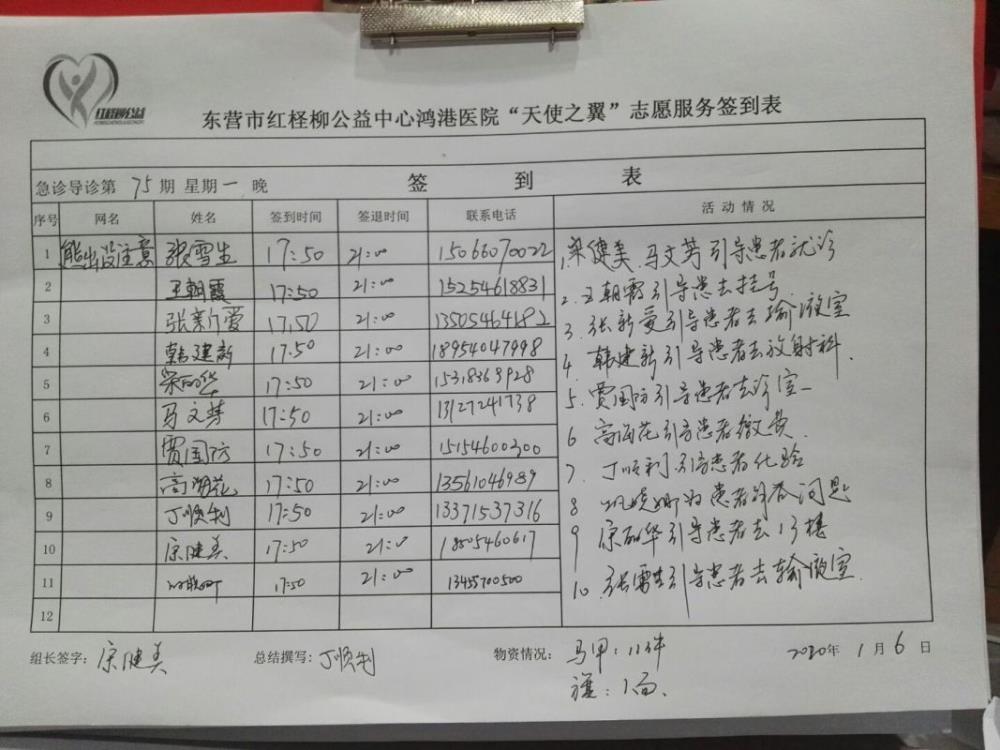 红柽柳公益
东营市红柽柳公益中心鸿港医院“天使之翼”志愿服务签到表
急诊导诊第 75 期 星期一 晚 签到表
序号 网名 姓名 签到时间 签退时间 联系电话 活动情况
1 熊出没注意 张雪生 17:50 21:00 15066070022
2 王朝霞 17:50 21:00 15254618831
3 张新爱 17:50 21:00 13505464182
4 韩建新 17:50 21:00 18954047998
5 宋丽华 17:50 21:00 15318369928
6 马文芳 17:50 21:00 13127241738
7 贾国防 17:50 21:00 15154600300
8 高海花 17:50 21:00 13561046989
9 丁顺利 17:50 21:00 13371537316
10 宋健美 17:50 21:00 18505460617
11 17:50 21:00 13455700500
12
1. 宋健美 马文芳引导患者就诊
2. 王朝霞引导患者去挂号
3. 张新爱引导患者去输液室
4. 韩建新引导患者去放射科.
5. 贾国防引导患者去诊室
6 高海花引导患者缴费.
7. 丁顺利引导患者化验
8 为患者解答问题
9 宋丽华引导患者去13楼
10. 张雪生引导患者去输液室.
组长签字: 宋健美 总结撰写: 丁顺利 物资情况: 马甲: 11件 2020年 1月 6日
旗: 1面.